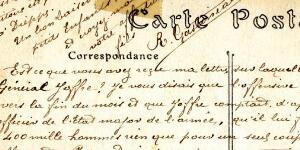 Un Baiser
petit enfant
Carte Posta
et voyez
votre
fils
R. Gassenat
Correspondance
Est ce que vous avez reçue ma lettre sur laquelle
Général Joffre? je vous disais que l'offensive
vers la fin du mois et que Joffre comptait, d'a
officier de l'État major de l'armée, qu'il lui f
400 mille hommes rien que pour un seul coup